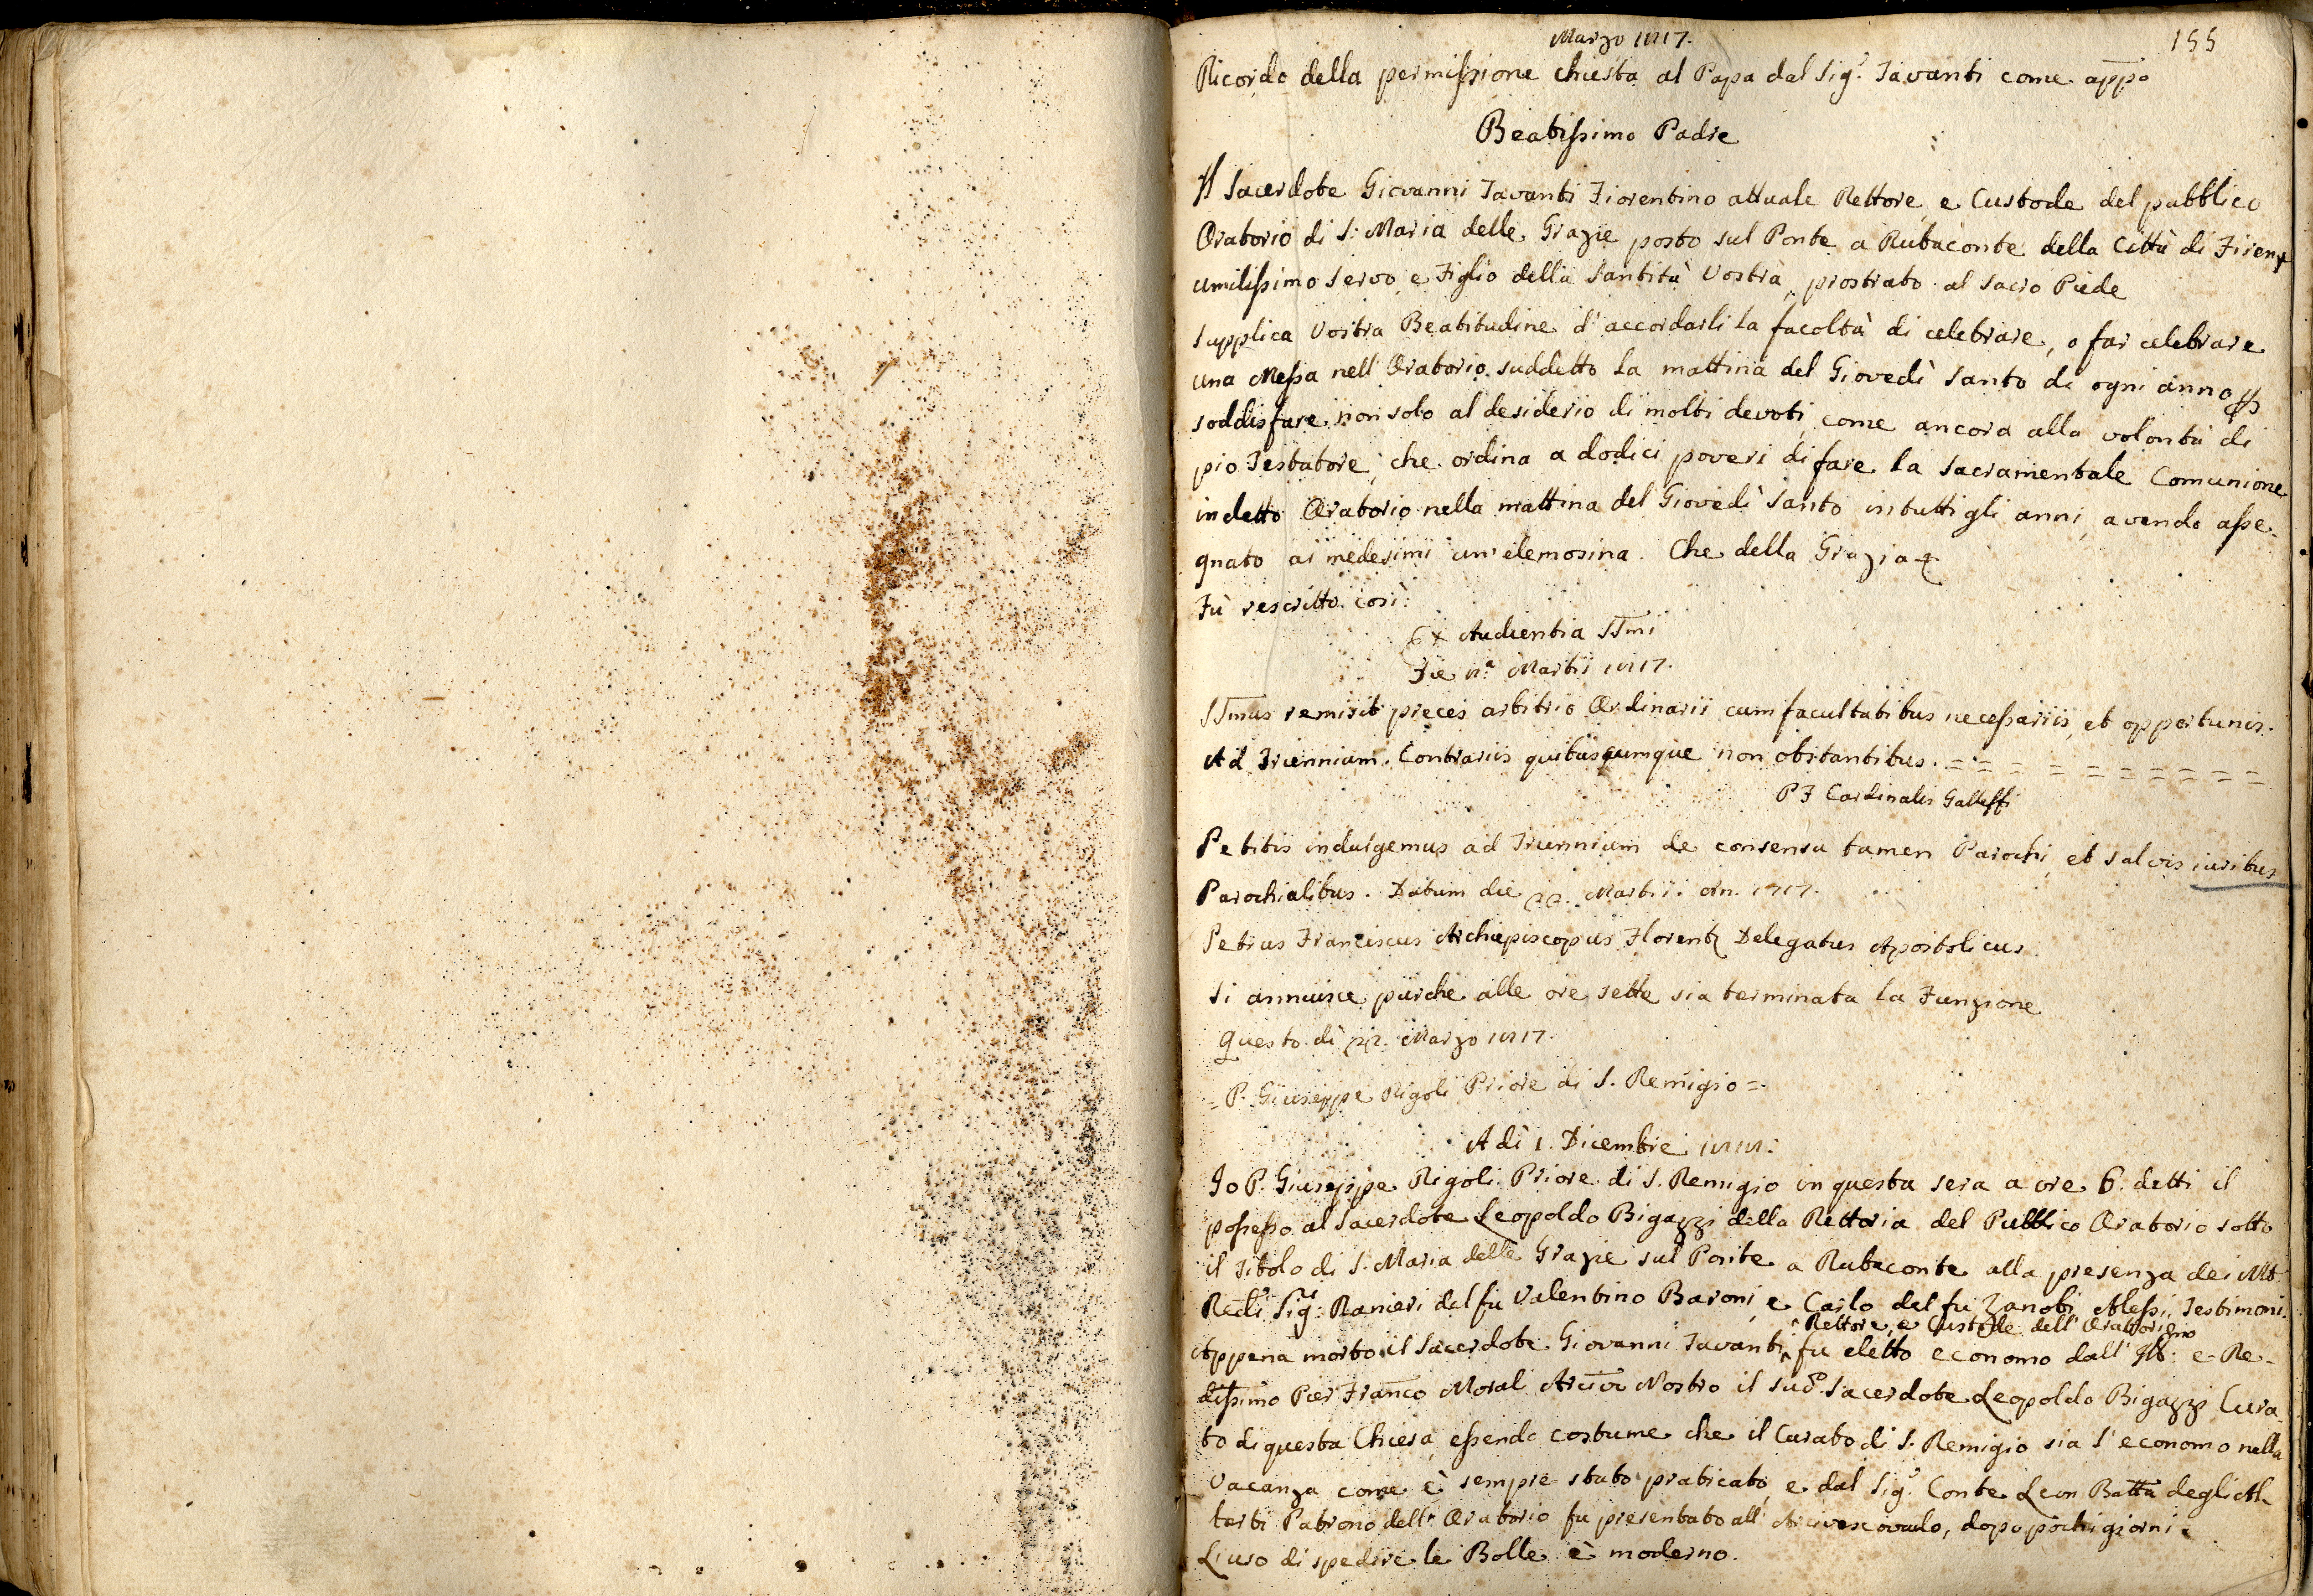 Marzo 1817.
155
Ricordo della permissione chiesta al Papa dal Sig.r Tavanti come app.o
Beatissimo Padre
Il Sacerdote Giovanni Tavanti Fiorentino attuale Rettore, e Custode del pubblico
Oratorio di S. Maria delle Grazie posto sul Ponte a Rubaconte della Città di Firenze
umilissimo servo, e Figlio della Santità Vostra, prostrato al Sacro Piede
supplica Vostra Beatitudine d'accordarli la facoltà di celebrare, o far celebrare
una Messa nell'Oratorio suddetto la mattina del Giovedì Santo di ogni anno p
soddisfare non solo al desiderio di molti devoti, come ancora alla volontà di
pio Testatore, che ordina a dodici poveri di fare la Sacramentale Comunione
in detto Oratorio nella mattina del Giovedì Santo in tutti gli anni, avendo asse-
gnato ai medesimi un'elemosina. Che della Grazia
Fù rescritto così:
Ex Audientia SSmi
Die 8.a Martii 1817.
SSmus remisit preces arbitrio Ordinarii cum facultatibus necessariis, et opportunis.
Ad Triennium. Contrariis quibuscumque non obstantibus. = = = = = = = = = =
P F Cardinalis Galleffi
Petitis indulgemus ad Triennium de consensu tamen Parochi, et salvis iuribus
Parochialibus. Datum die 22. Martii. An. 1817.
Petrus Franciscus Archiepiscopus Florent. Delegatus Apostolicus.
Si annuisce purche alle ore sette sia terminata la Funzione
Questo dì 22. Marzo 1817.
= P. Giuseppe Rigoli Priore di S. Remigio =
A dì 1. Dicembre 1818.
Io P. Giuseppe Rigoli Priore di S. Remigio in questa sera a ore 6. detti il
possesso al Sacerdote Leopoldo Bigazzi della Rettoria del Pubblico Oratorio sotto
il Titolo di S. Maria delle Grazie sul Ponte a Rubaconte alla presenza dei Mt.
Redi Sig.ri Ranieri del fu Valentino Baroni, e Carlo del fu Zanobi Alessi, Testimoni.
^ Rettore, e Custode dell'Oratorio
Appena morto il Sacerdote Giovanni Tavanti ^ fu eletto economo dall'Ill.mo e Re-
dissimo Pier Franco Moral Arcivo Nostro il sud.o Sacerdote Leopoldo Bigazzi Cura-
to di questa Chiesa, essendo costume che il Curato di S. Remigio sia l'economo nella
Vacanza come è sempre stato praticato, e dal Sig.r Conte Leon Batta degli Al-
berti Patrono dell'Oratorio fu presentato all'Arcivescovado, dopo pochi giorni.
L'uso di spedire le Bolle è moderno.